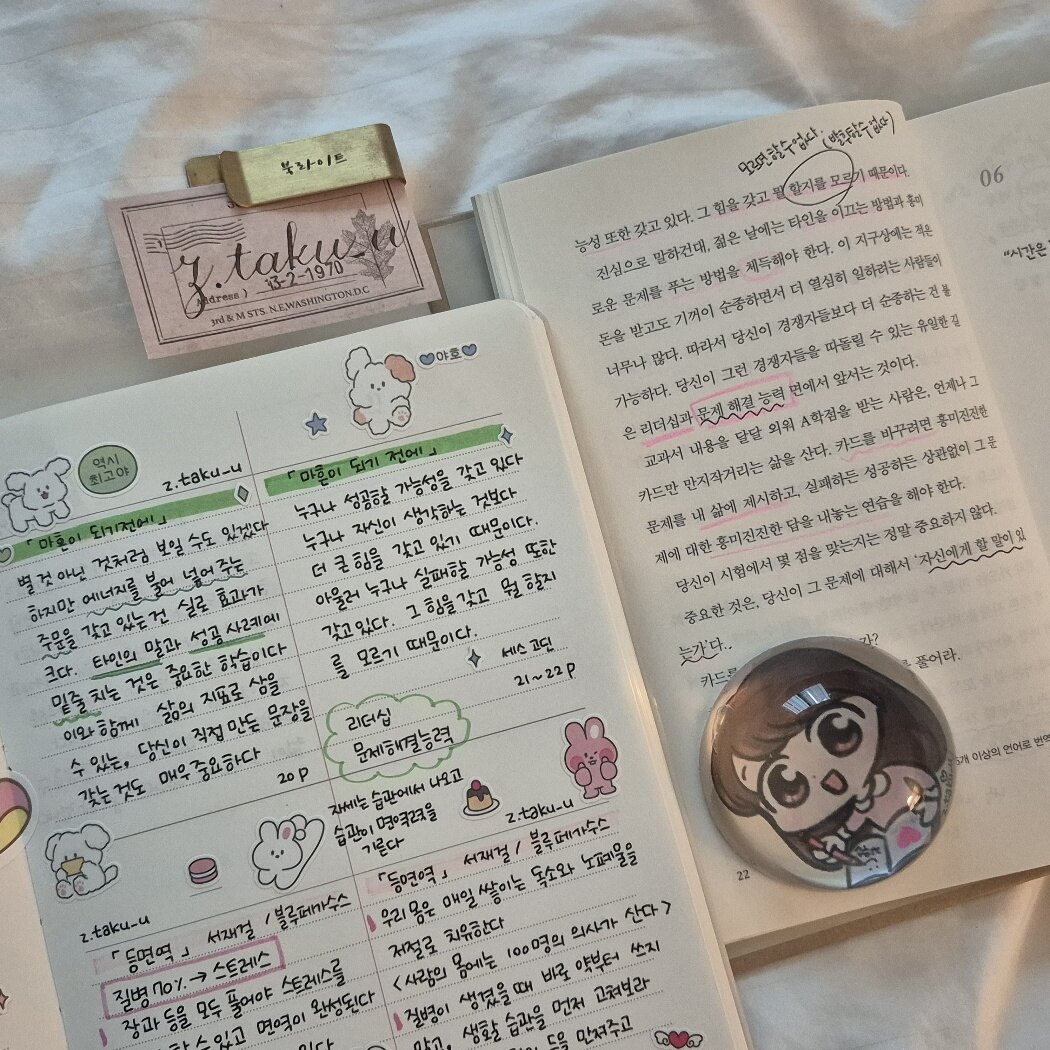 북라이트
z.taku_u
Address )
13-2-1970
3rd & M STS. N.E.WASHINGTON.D.C
야호
역시
최고야
z.taku_u
「마흔이 되기 전에」
별 것 아닌 것처럼 보일 수도 있겠다
하지만 에너지를 불어 넣어 주는
주문을 갖고 있는 건 실로 효과가
크다. 타인의 말과 성공 사례에
밑줄 치는 것은 중요한 학습이다
이와 함께 삶의 지표로 삼을
수 있는, 당신이 직접 만든 문장을
갖는 것도 매우 중요하다
20p
「마흔이 되기 전에」
누구나 성공할 가능성을 갖고 있다
누구나 자신이 생각하는 것보다
더 큰 힘을 갖고 있기 때문이다.
아울러 누구나 실패할 가능성 또한
갖고 있다. 그 힘을 갖고 뭘 할지
를 모르기 때문이다.
세스 고딘
21~22p
리더십
문제해결능력
자세는 습관에서 나오고
습관이 면역력을
기른다
z.taku_u
「등면역」 서재걸 / 블루페가수스
질병 70% → 스트레스
장과 등을 모두 풀어야 스트레스를
할 수 있고 면역이 완성된다
z.taku_u
「등면역」 서재걸 / 블루페가수스
우리 몸은 매일 쌓이는 독소와 노폐물을
저절로 치유한다
<사람의 몸에는 100명의 의사가 산다>
질병이 생겼을 때 바로 약부터 쓰지
말고, 생활 습관을 먼저 고쳐보라
등을 만져주고
능성 또한 갖고 있다. 그 힘을 갖고 뭘 할지를 모르기 때문이다.
진심으로 말하건대, 젊은 날에는 타인을 이끄는 방법과 흥미
로운 문제를 푸는 방법을 체득해야 한다. 이 지구상에는 적은
돈을 받고도 기꺼이 순종하면서 더 열심히 일하려는 사람들이
너무나 많다. 따라서 당신이 경쟁자들보다 더 순종하는 건 불
가능하다. 당신이 그런 경쟁자들을 따돌릴 수 있는 유일한 길
은 리더십과 문제 해결 능력 면에서 앞서는 것이다.
교과서 내용을 달달 외워 A학점을 받는 사람은, 언제나 그
카드만 만지작거리는 삶을 산다. 카드를 바꾸려면 흥미진진한
문제를 내 삶에 제시하고, 실패하든 성공하든 상관없이 그 문
제에 대한 흥미진진한 답을 내놓는 연습을 해야 한다.
당신이 시험에서 몇 점을 맞는지는 정말 중요하지 않다.
중요한 것은, 당신이 그 문제에 대해서 '자신에게 할 말이 있
는가'다.
카드를
풀어라.
22
06
"시간은
개 이상의 언어로 번역